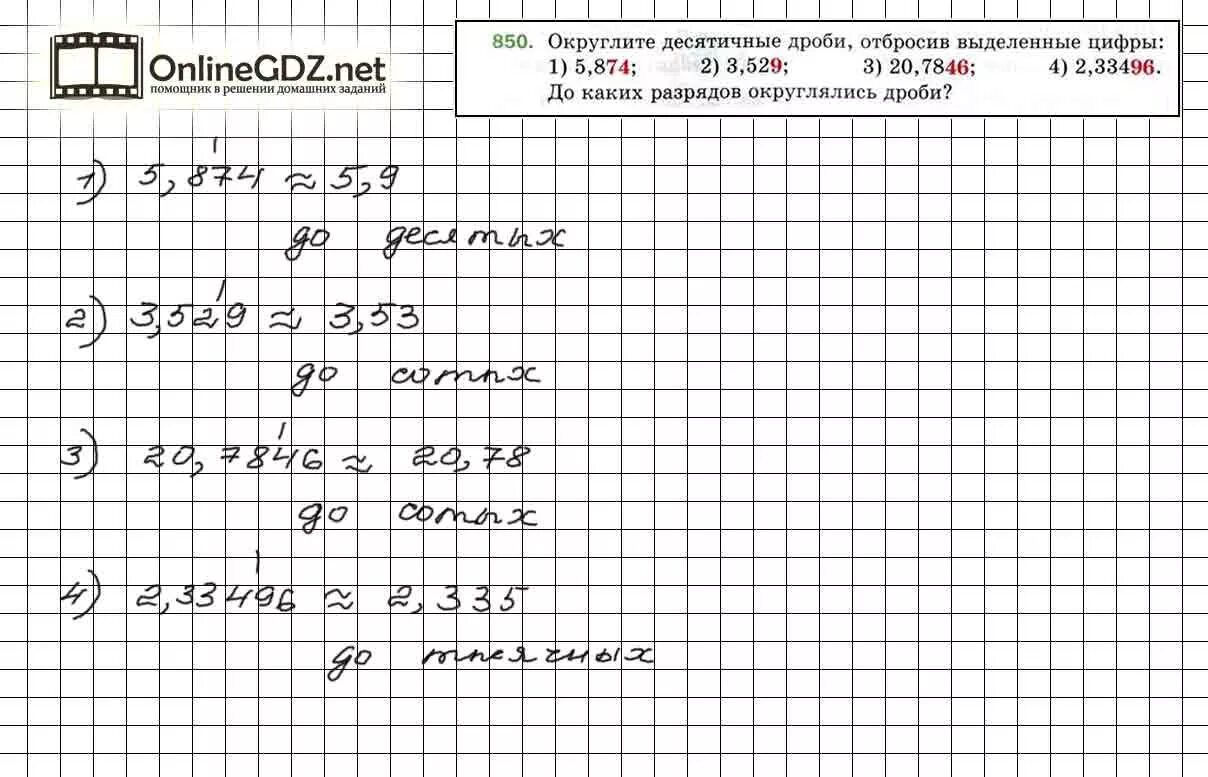 OnlineGDZ.net
помощник в решении домашних заданий
850. Округлите десятичные дроби, отбросив выделенные цифры:
1) 5,874; 2) 3,529; 3) 20,7846; 4) 2,33496.
До каких разрядов округлялись дроби?
1) 5,874 ≈ 5,9
до десятых
2) 3,529 ≈ 3,53
до сотых
3) 20,7846 ≈ 20,78
до сотых
4) 2,33496 ≈ 2,335
до тысячных